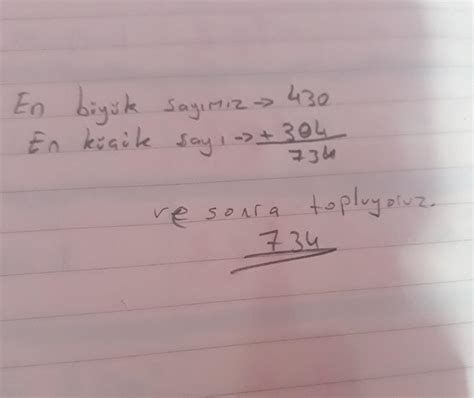 En büyük sayımız → 430
En küçük sayı → + 304
734
ve sonra topluyoruz.
734